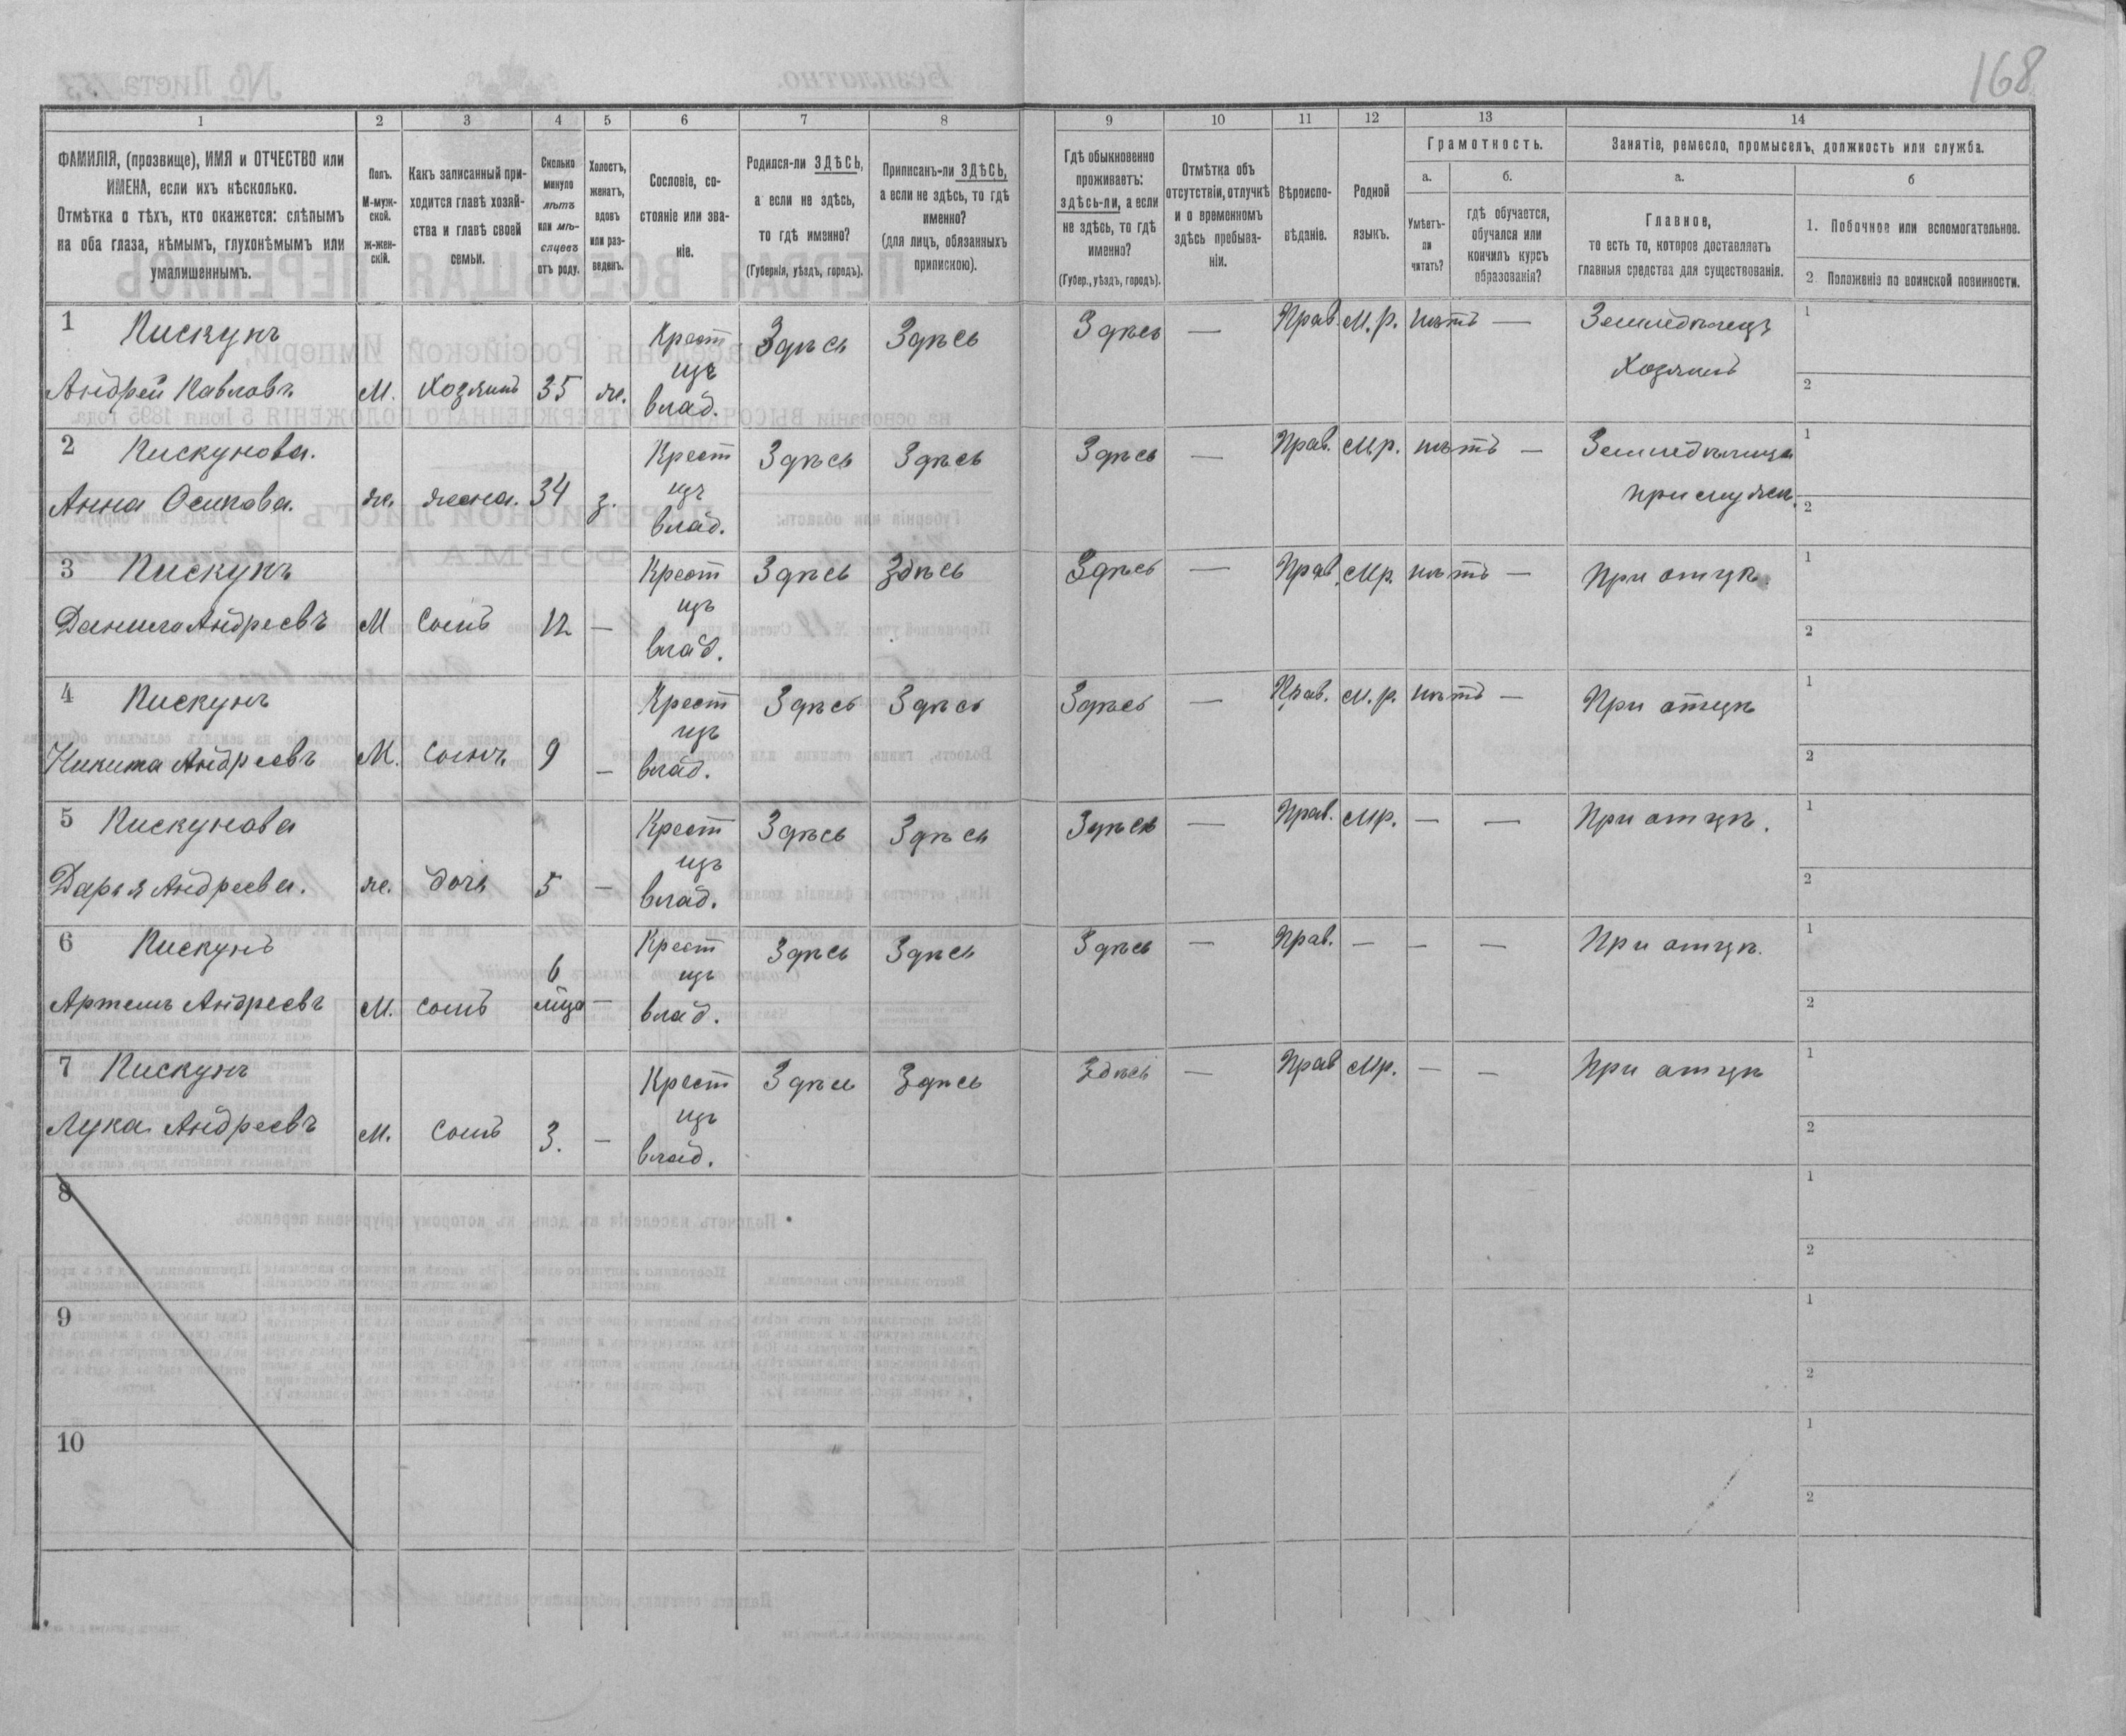 168
1 2 3 4 5 6 7 8 9 10 11 12 13 14
ФАМИЛІЯ, (прозвище), ИМЯ и ОТЧЕСТВО или ИМЕНА, если ихъ нѣсколько.
Отмѣтка о тѣхъ, кто окажется: слѣпымъ на оба глаза, нѣмымъ, глухонѣмымъ или умалишеннымъ.
Полъ.
М-мужской.
ж-женскій.
Какъ записанный приходится главѣ хозяйства и главѣ своей семьи.
Сколько минуло лѣтъ или мѣсяцевъ отъ роду.
Холостъ, женатъ, вдовъ или разведенъ.
Сословіе, состояніе или званіе.
Родился-ли ЗДѢСЬ, а если не здѣсь, то гдѣ именно?
(Губернія, уѣздъ, городъ).
Приписанъ-ли ЗДѢСЬ, а если не здѣсь, то гдѣ именно?
(для лицъ, обязанныхъ припискою).
Гдѣ обыкновенно проживаетъ: здѣсь-ли, а если не здѣсь, то гдѣ именно?
(Губер., уѣздъ, городъ).
Отмѣтка объ отсутствіи, отлучкѣ и о временномъ здѣсь пребываніи.
Вѣроисповѣданіе.
Родной языкъ.
Грамотность.
а.
Умѣетъ-ли читать?
б.
гдѣ обучается, обучался или кончилъ курсъ образованія?
Занятіе, ремесло, промыселъ, должность или служба.
а.
Главное,
то есть то, которое доставляетъ главныя средства для существованія.
б
1. Побочное или вспомогательное.
2. Положеніе по воинской повинности.
1 Пискунъ
Андрей Павловъ М. Хозяинъ 35 ж. Крест изъ влад. Здѣсь Здѣсь Здѣсь — Прав. М.р. нѣтъ — Земледѣлецъ Хозяинъ 1 2
2 Пискунова.
Анна Осипова. ж. жена. 34 з. Крест изъ влад. Здѣсь Здѣсь Здѣсь — Прав. М.р. нѣтъ — Земледѣлица при мужѣ. 1 2
3 Пискунъ
Данило Андреевъ М Сынъ 12 — Крест изъ влад. Здѣсь Здѣсь Здѣсь — Прав. М.р. нѣтъ — При отцѣ. 1 2
4 Пискунъ
Никита Андреевъ М. Сынъ 9 — Крест изъ влад. Здѣсь Здѣсь Здѣсь — Прав. М.р. нѣтъ — При отцѣ 1 2
5 Пискунова
Дарья Андреева. ж. дочь 5 — Крест изъ влад. Здѣсь Здѣсь Здѣсь — Прав. М.р. — — При отцѣ. 1 2
6 Пискунъ
Артемъ Андреевъ М. сынъ 6 м҃ца — Крест изъ влад. Здѣсь Здѣсь Здѣсь — Прав. — — — При отцѣ. 1 2
7 Пискунъ
Лука Андреевъ М. Сынъ 3. — Крест изъ влад. Здѣсь Здѣсь Здѣсь — Прав М.р. — — При отцѣ 1 2
8 1 2
9 1 2
10 1 2